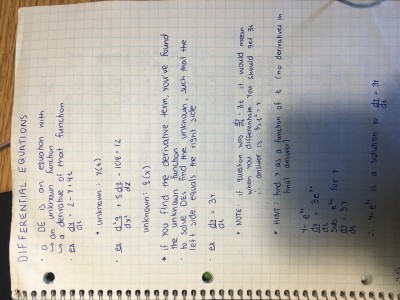 DIFFERENTIAL EQUATIONS
• a DE is an equation with
↳ an unknown function
↳ a derivative of that function
• ex dr/dt = 2 - r + t
* unknown : r(t)
• ex d²g/dx² + 5 dg/dx - 10g = 12
unknown: g(x)
* if you find the derivative term, you've found
the unknown function
• to solve DEs: find the unknown, such that the
left side equals the right side
• ex dr/dt = 3r
• NOTE: if question was dr/dt = 3t it would mean
when you differentiate you should get 3t
∴ answer is 3/2 t² = r
* HINT: find r as a function of t (no derivatives in
final answer)
r = e³ᵗ
dr/dt = 3e³ᵗ
sub e³ᵗ for r
dr/dt = 3r
∴ r = e³ᵗ is a solution to dr/dt = 3r